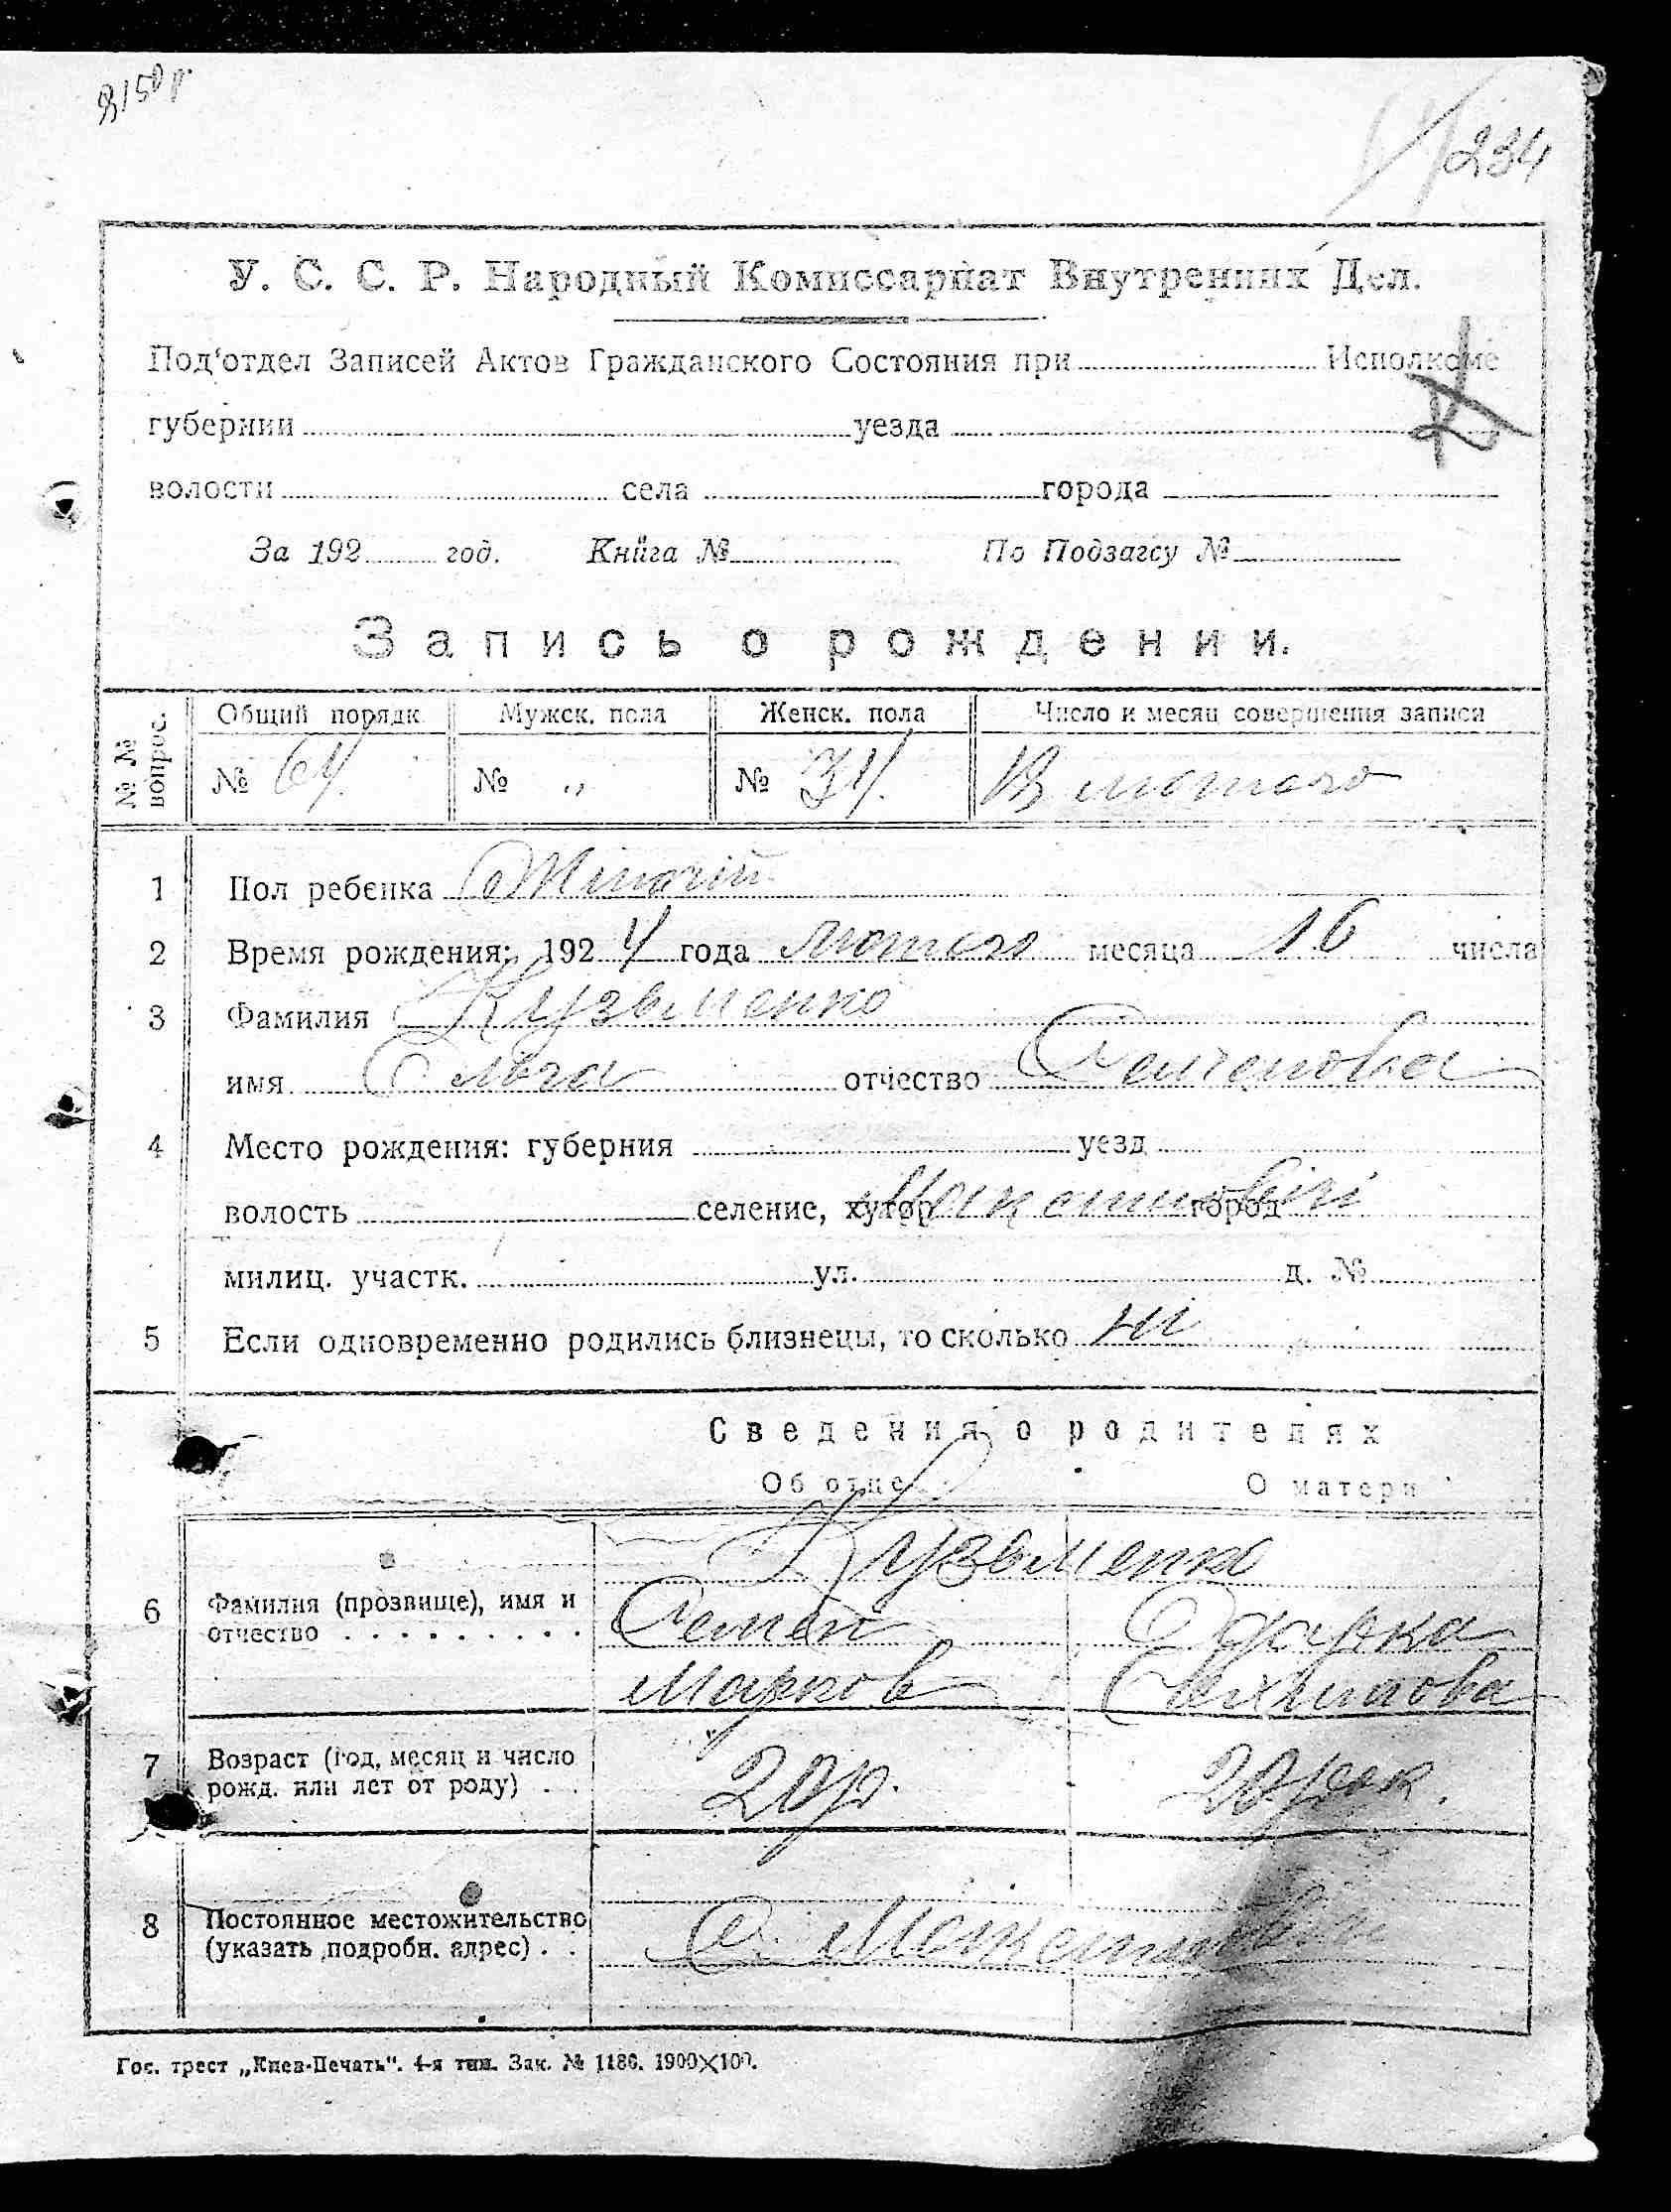 234
У. С. С. Р. Народный Комиссариат Внутренних Дел.
Под'отдел Записей Актов Гражданского Состояния при Исполкоме
губернии уезда
волости села города
За 192 год. Книга № По Подзагсу №
Запись о рождении.
№ № вопрос. Общий порядк. Мужск. пола Женск. пола Число и месяц совершения записи
№ 64. № „ № 34. лютого
1 Пол ребенка Жіночій
2 Время рождения: 1924 года лютого месяца 16 числа
3 Фамилия Кузьменко
имя Ольга отчество Семенова
4 Место рождения: губерния уезд
волость селение, хутор город
милиц. участк. ул. д. №
5 Если одновременно родились близнецы, то сколько ні
Сведения о родителях
Об отце О матери
Кузьменко
6 Фамилия (прозвище), имя и
отчество Семен
Марков
7 Возраст (год, месяц и число
рожд. или лет от роду) 20 р. 20 рок.
8 Постоянное местожительство
(указать подробн. адрес) С.
Гос. трест „Киев-Печать". 4-я тип. Зак. № 1186. 1900×100.